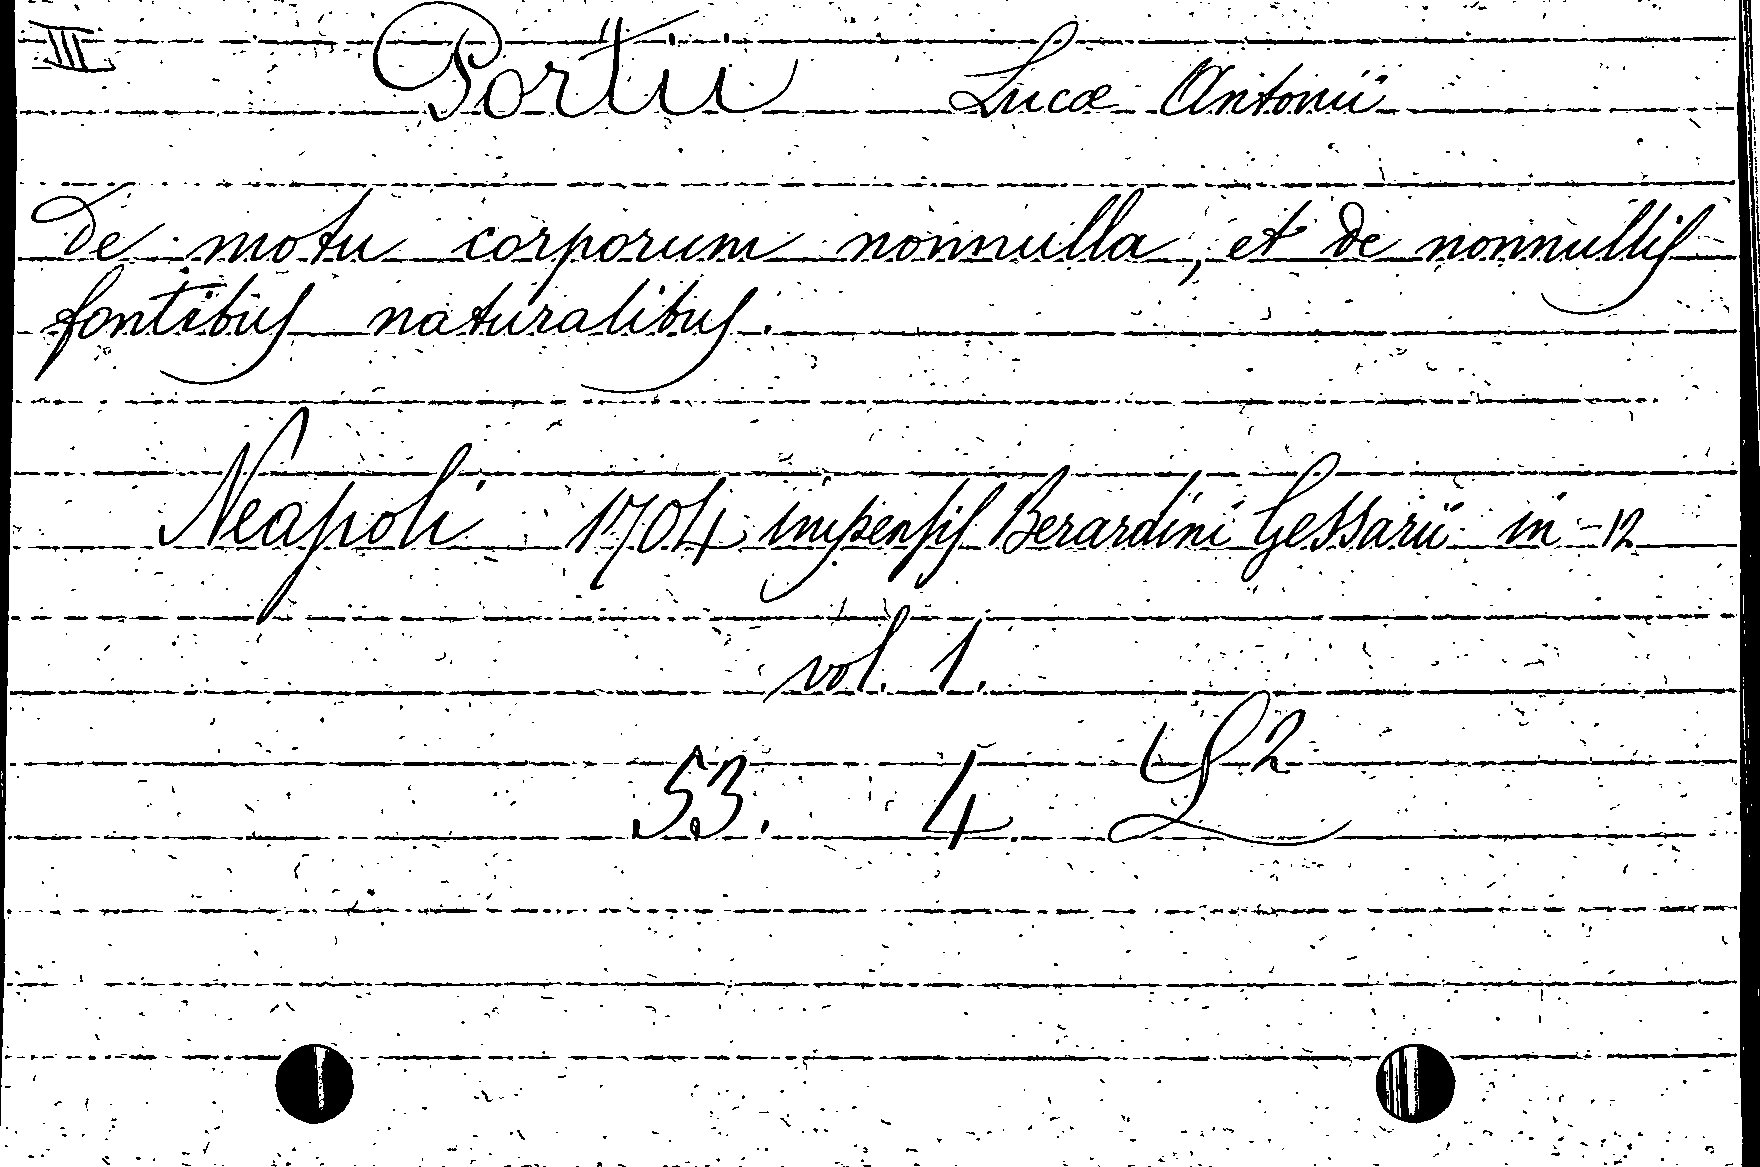 III Portii Lucæ Antonii
De motu corporum nonnulla, et de nonnullis
fontibus naturalibus.
Neapoli 1704 impensis Berardini Gessarii in-12
vol. 1.
53. 4 2